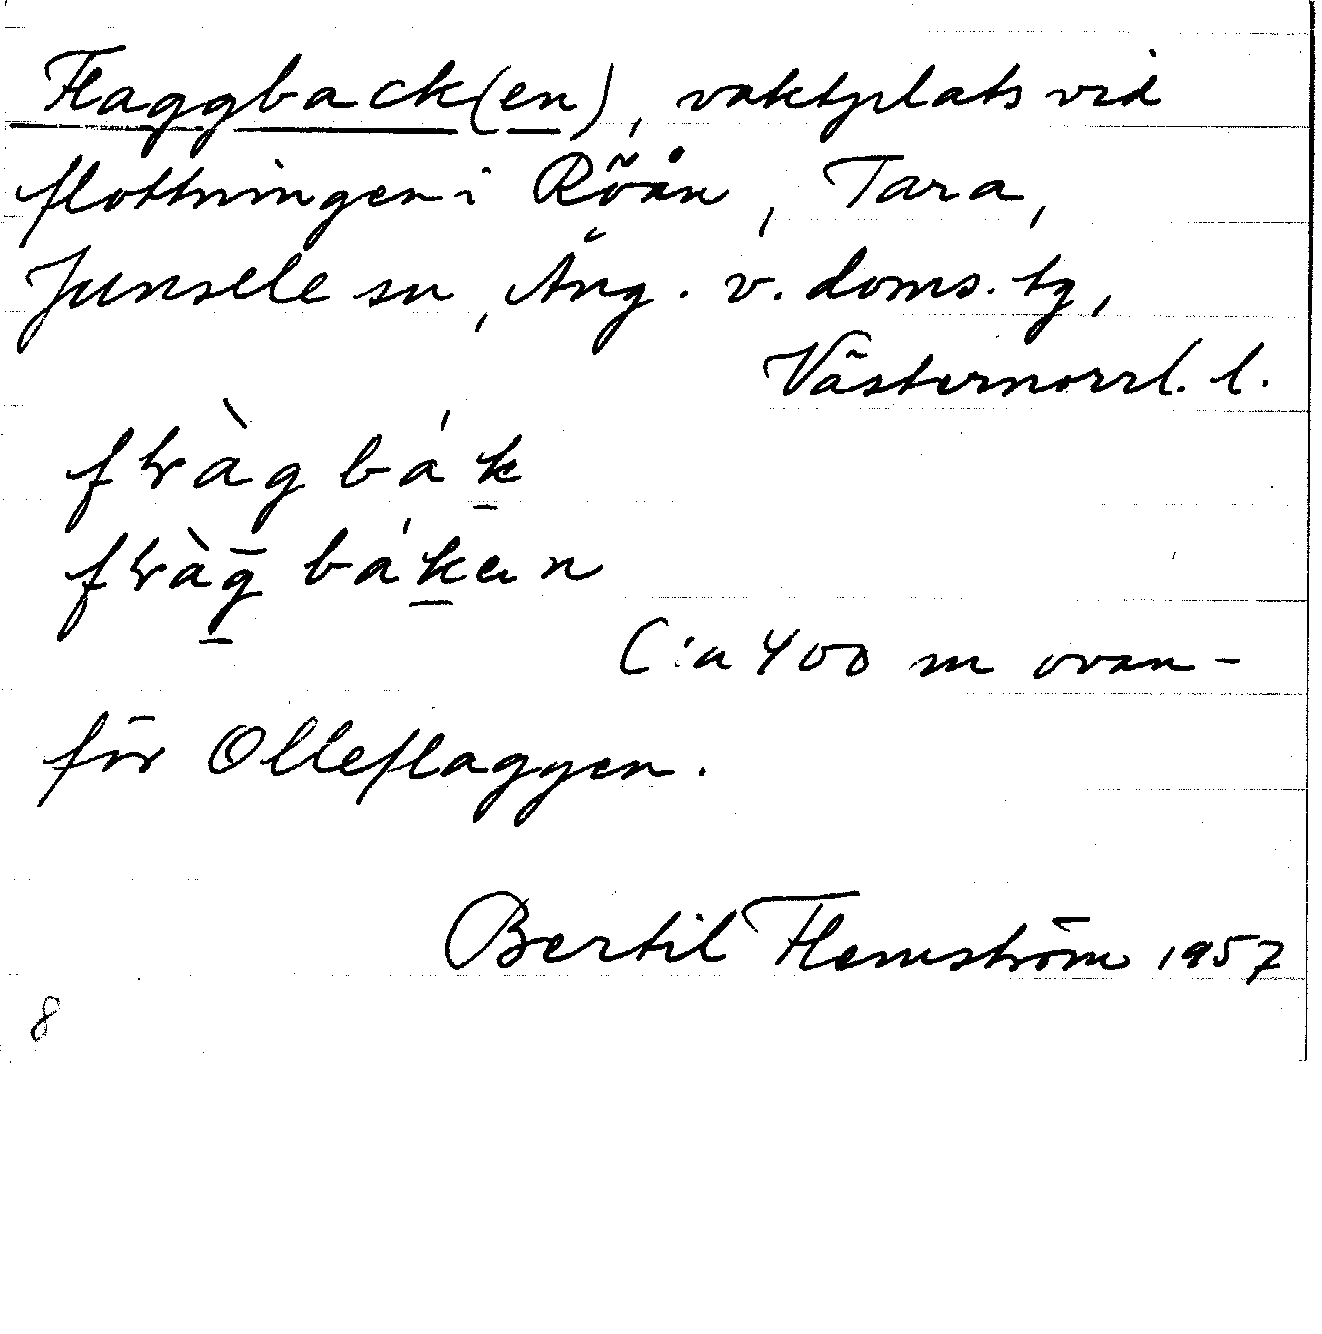 Flaggback(en), vaktplats vid
flottningen i Röån, Tara,
Junsele sn, Ång. v. doms. tg,
Västernorrl. l.
C:a 400 m ovan-
för Olleflaggen.
Bertil Flemström 1957
8